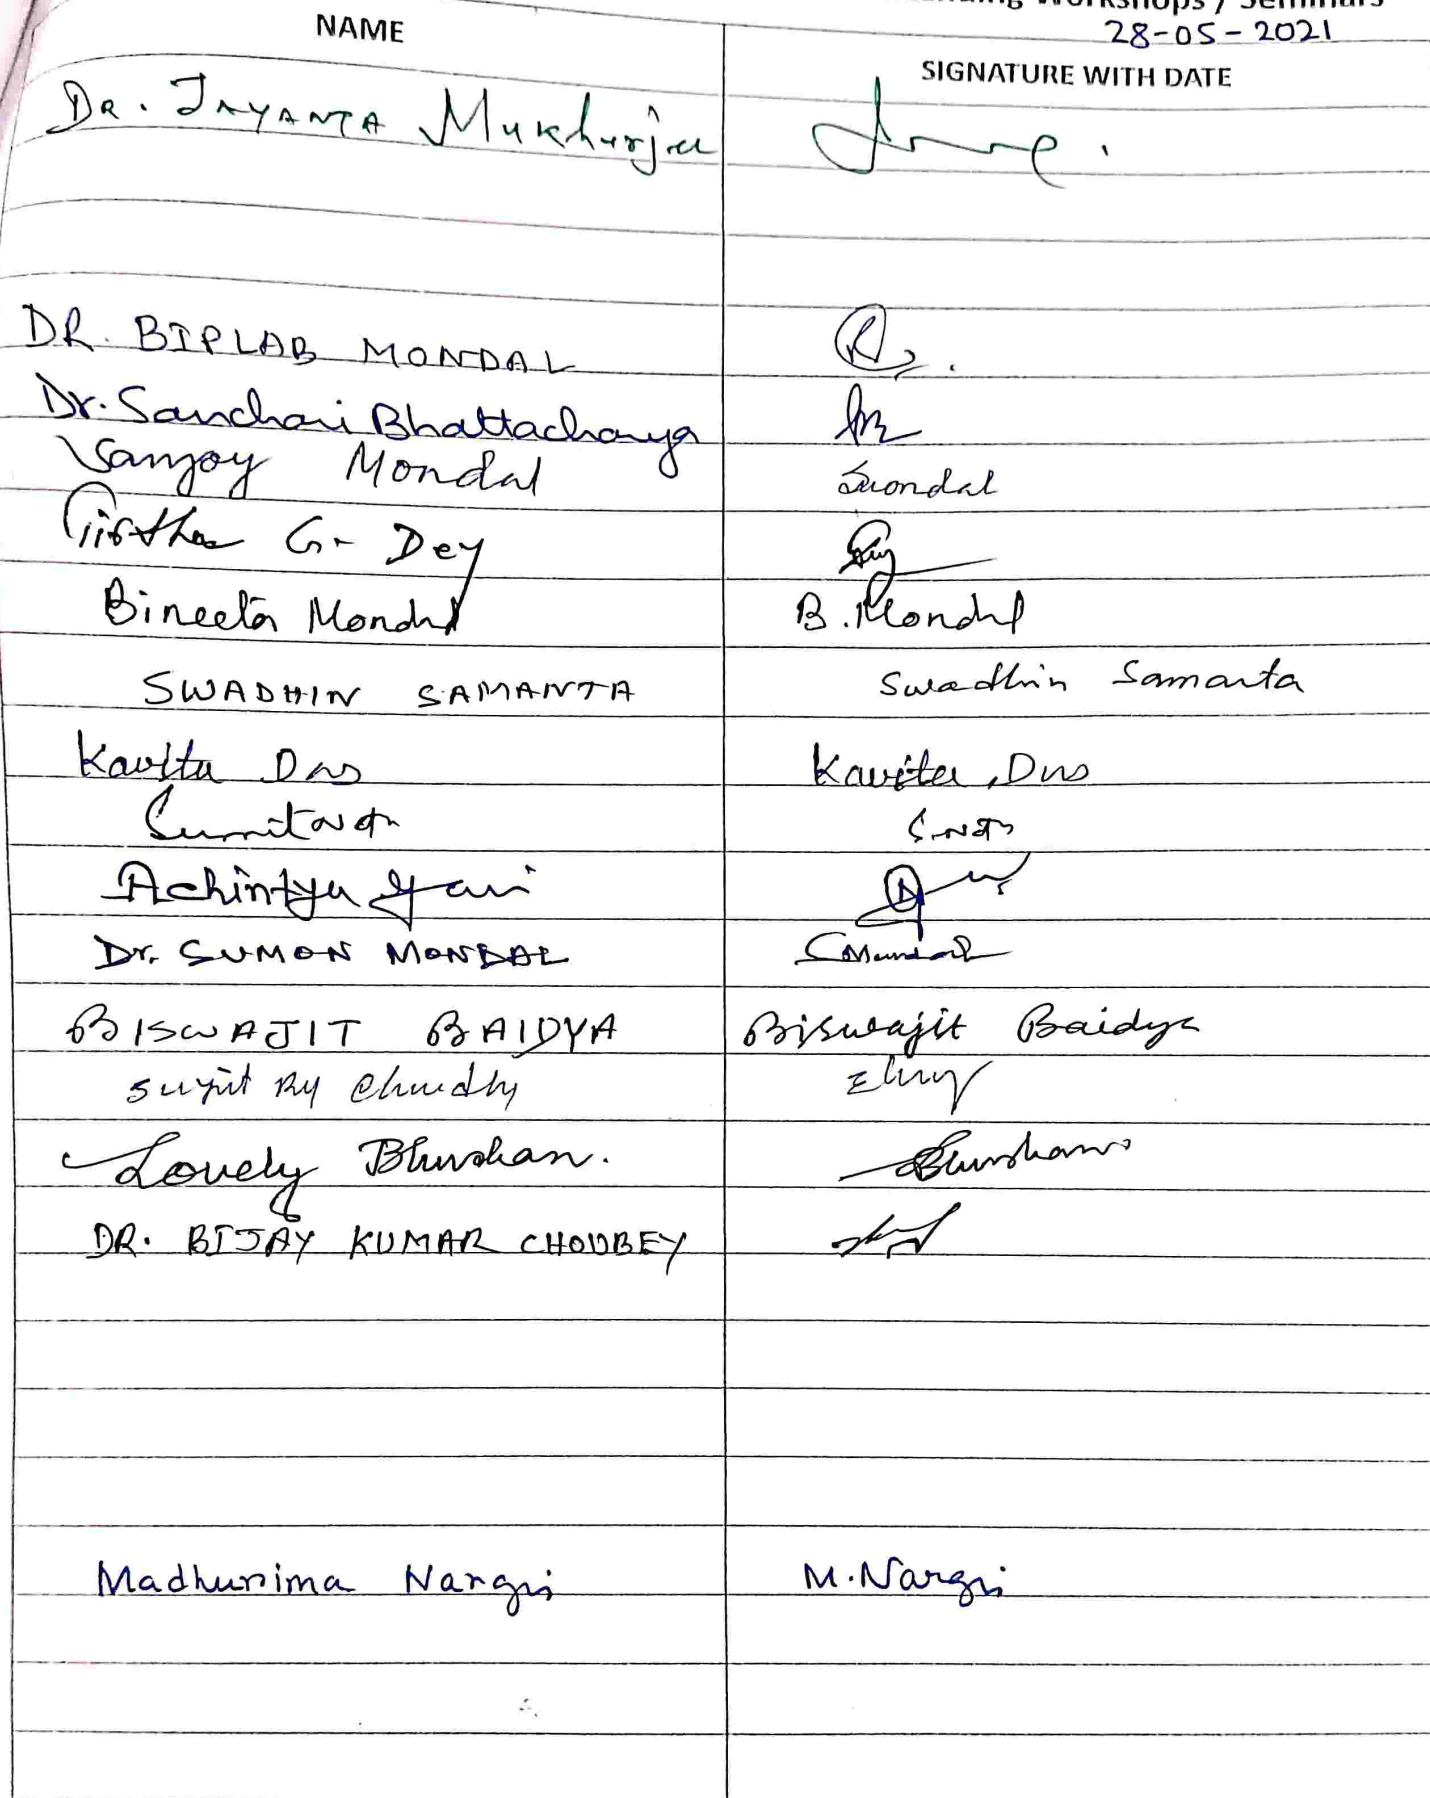 Workshops / Seminars
28-05-2021
NAME
SIGNATURE WITH DATE
DR. JAYANTA Mukherjee
DR. BIPLAB MONDAL
Dr. Sanchari Bhattacharya
Sanjoy Mondal Smondal
G- Dey
Bineeta Mondal B. Mondal
SWADHIN SAMANTA Swadhin Samanta
Kavita Das Kavita Das
Achintya
Dr. SUMON MONDAL SMondal
BISWAJIT BAIDYA Biswajit Baidya
Sujit Ry Chowdhy
Lovely Bhushan. Bhushan
DR. BIJAY KUMAR CHOUBEY
Madhurima Nargis M. Nargis